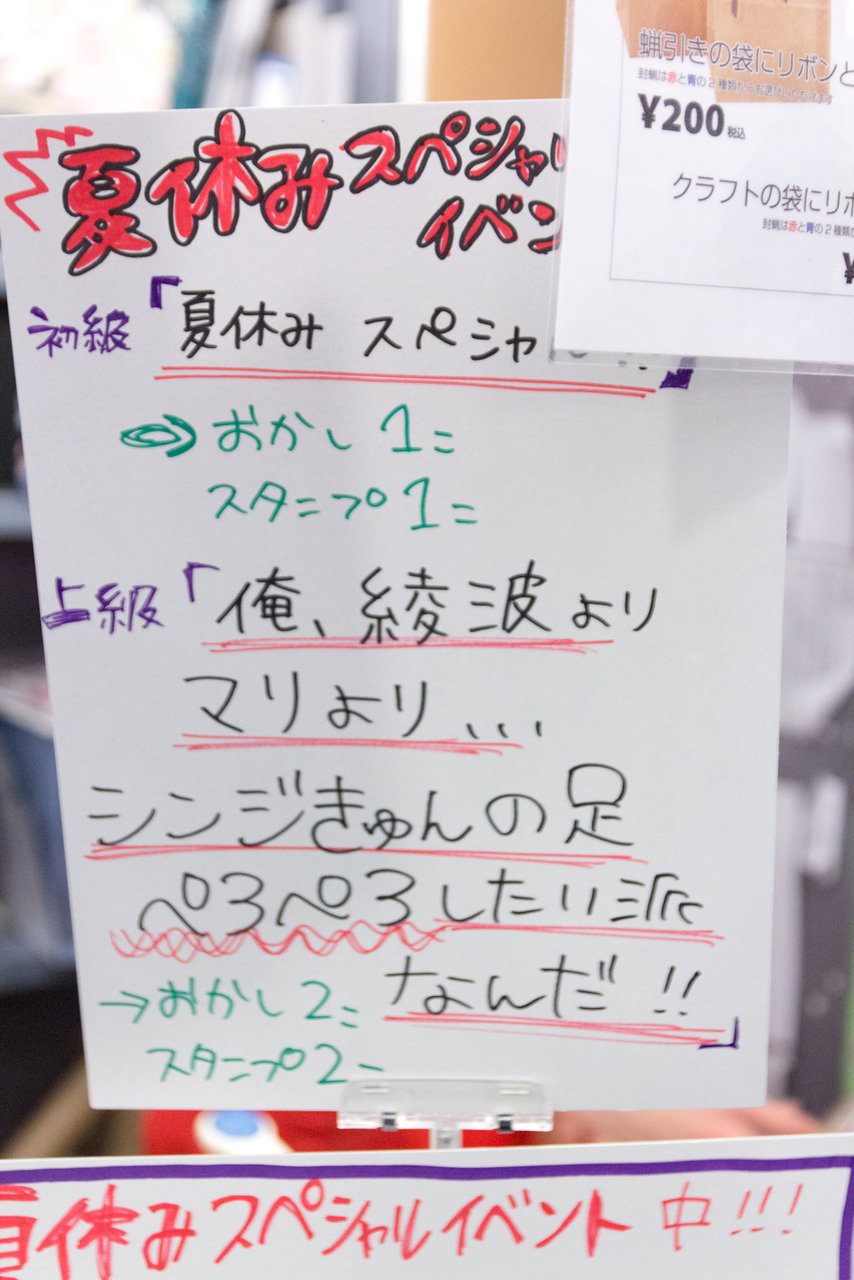 蝋引きの袋にリボンと
封蝋は赤と青の2種類からお選びいただけます
¥200税込
クラフトの袋にリボ
封蝋は赤と青の2種類か
¥
夏休みスペシャル
イベン
初級「夏休み スペシャ !!」
⇨おかし1コ
スタンプ1コ
上級「俺、綾波より
マリより...
シンジきゅんの足
ペロペロしたい派
なんだ!!」
→おかし2コ
スタンプ2コ
夏休みスペシャルイベント中!!!